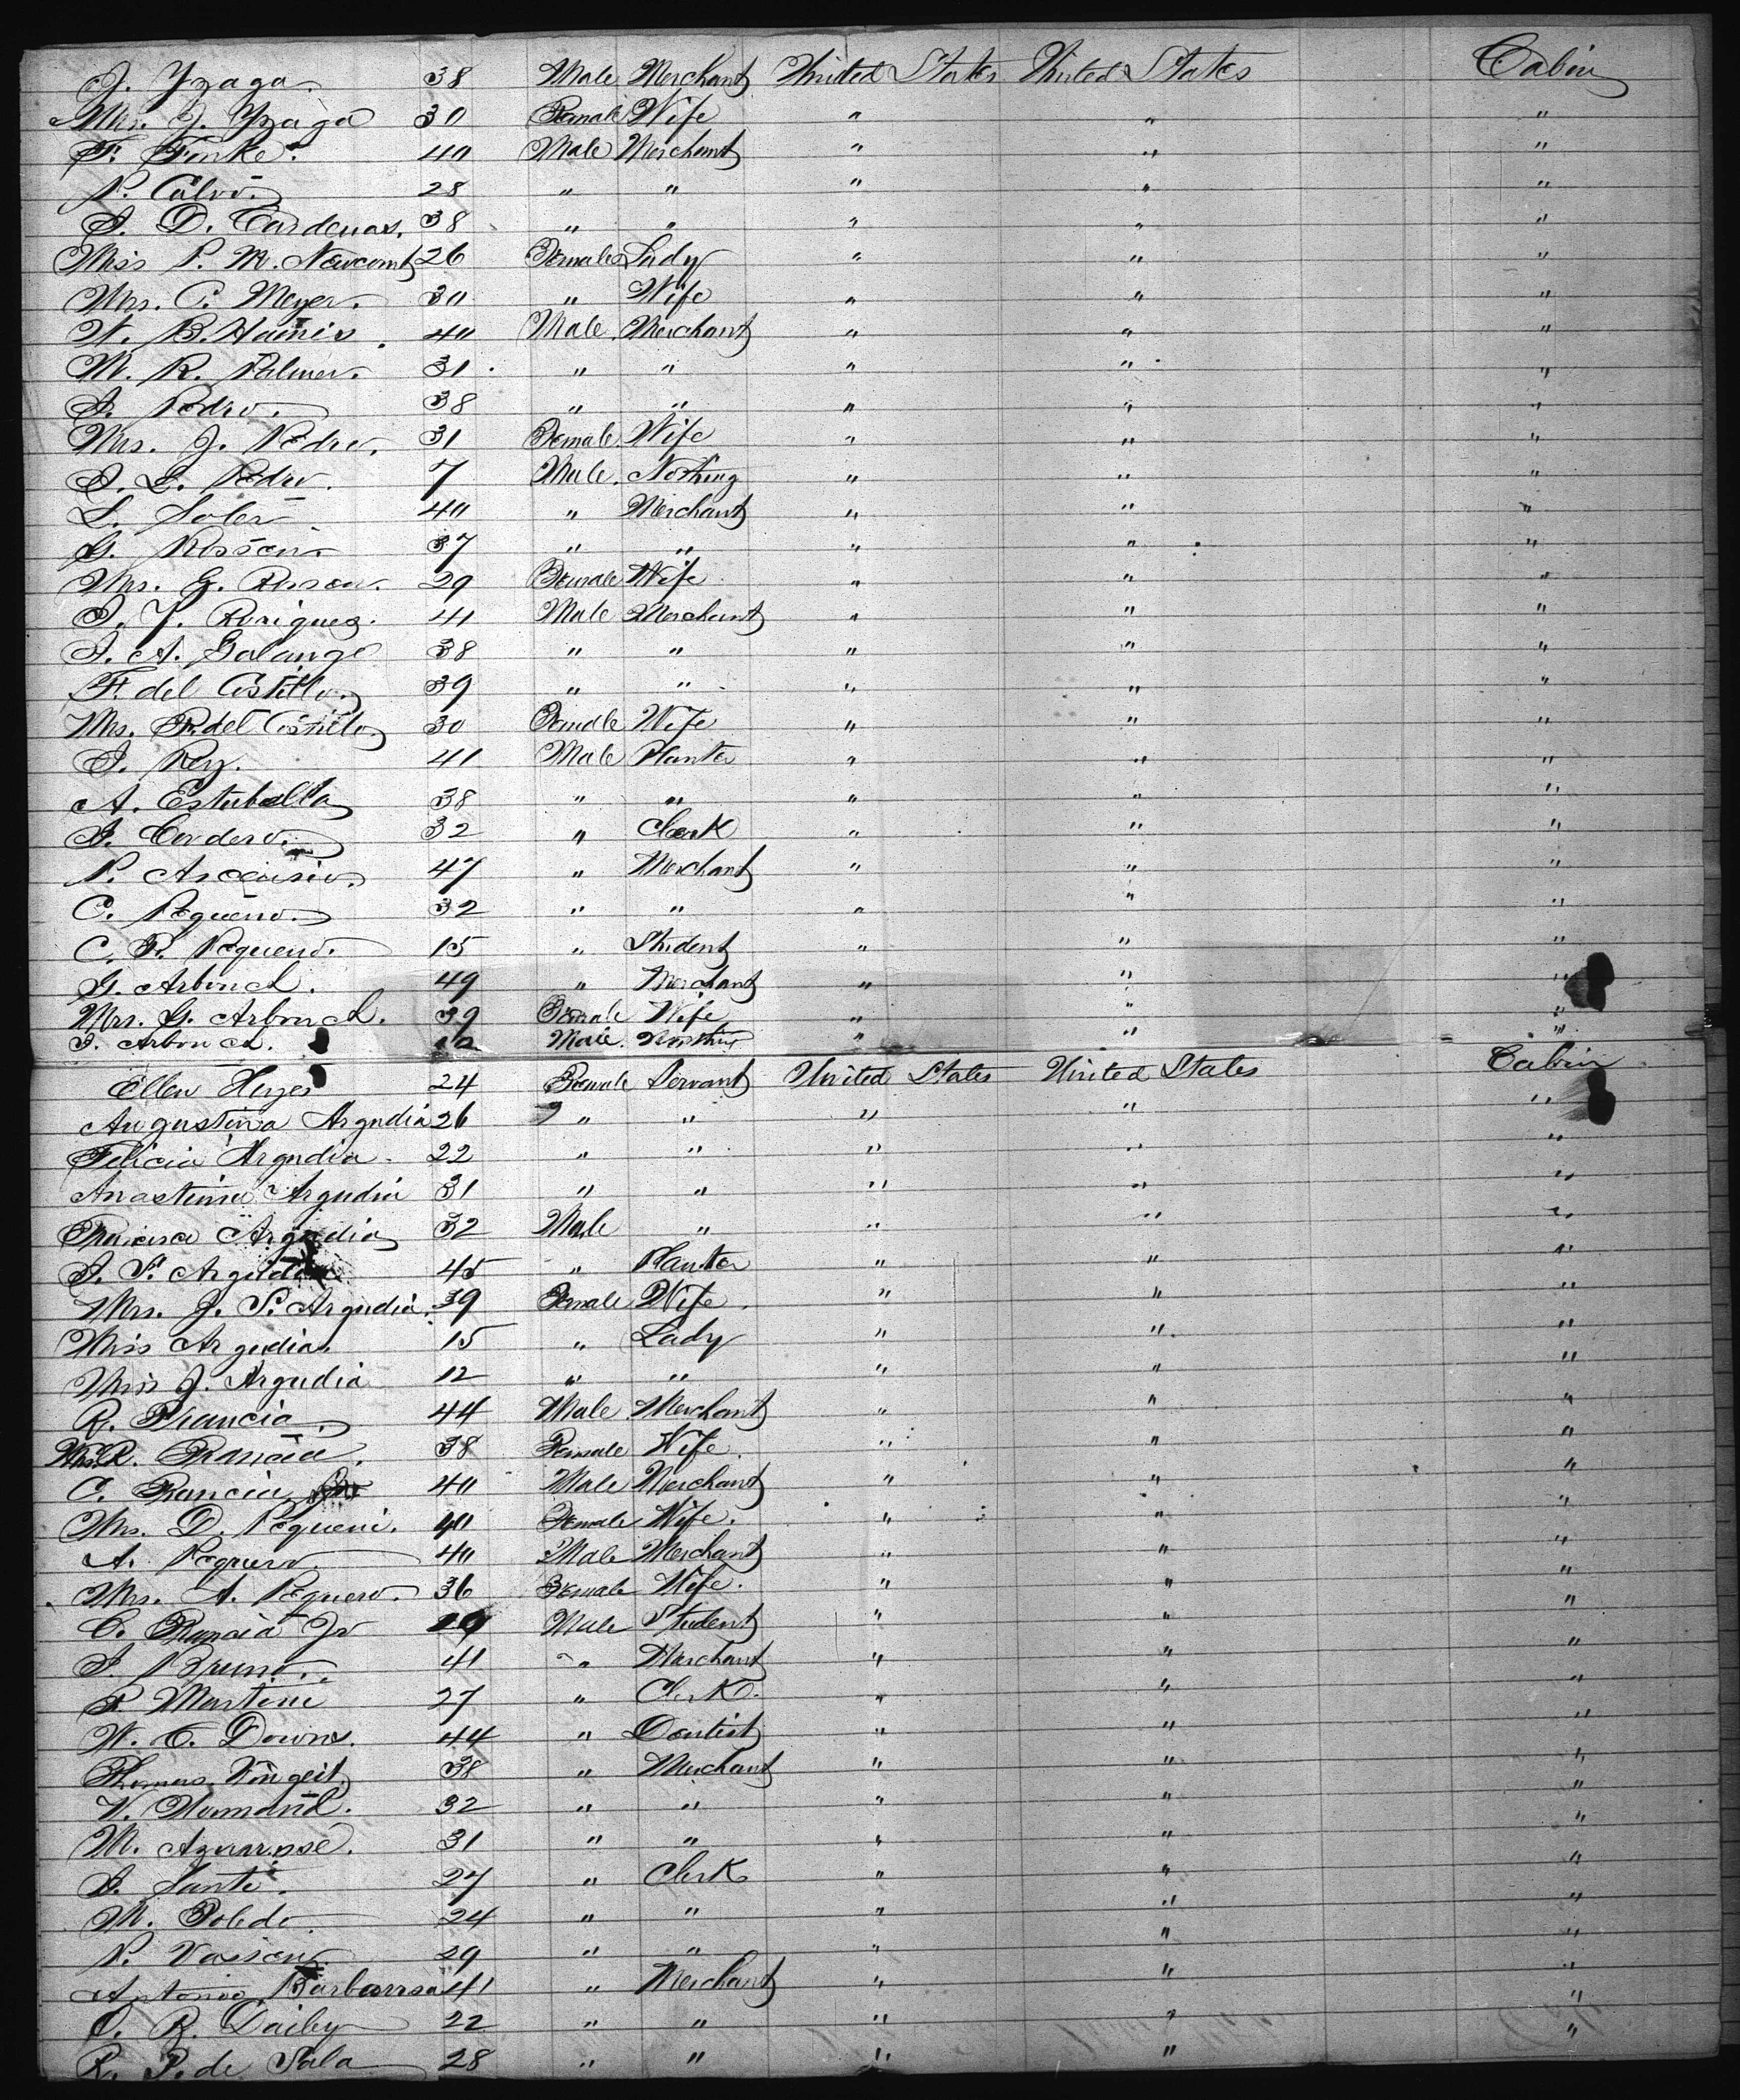 J. Yzaga. 38 Male Merchant United States United States Cabin
Mrs. J. Yzaga 30 Female Wife " " "
F. Finke. 40 Male Merchant " " "
P. Calvo. 28 " " " " "
J. D. Cardenas. 38 " " " " "
Miss P. M. Newcomb 26 Female Lady " " "
Mrs. C. Meyer. 30 " Wife " " "
W. B. Harris. 40 Male Merchant " " "
M. R. Palmer. 31 " " " " "
J. Pedro. 38 " " " " "
Mrs. J. Pedro. 31 Female Wife " " "
J. L. Pedro. 7 Male Nothing " " "
L. Soler 40 " Merchant " " "
G. 37 " " " " "
Mrs. G. 29 Female Wife " " "
J. Y. Rorigues. 41 Male Merchant " " "
J. A. Galango 38 " " " " "
F. del Castillo 39 " " " " "
Mrs. F. del Castillo 30 Female Wife " " "
J. Rey. 41 Male Planter " " "
A. Estubella 38 " " " " "
J. Cordero. 32 " Clerk " " "
P. Ascensio. 47 " Merchant " " "
C. Pequeno. 32 " " " " "
C. P. Pequeno. 15 " Student " " "
G. Arbouch. 49 " Merchant " " "
Mrs. G. Arbouch. 39 Female Wife " " "
J. Arbouch. 12 Male Nothing " " "
Ellen 24 Female Servant United States United States Cabin
Augustina Argudia 26 " " " " "
Felicia Argudia 22 " " " " "
Anasteima Argudia 31 " " " " "
Francisco Argudia 32 Male " " " "
J. S. Argudia 45 " Planter " " "
Mrs. J. S. Argudia. 39 Female Wife. " " "
Miss Argudia. 15 " Lady " " "
Miss J. Argudia 12 " " " " "
R. Francia. 44 Male Merchant " " "
Mrs. R. Francia. 38 Female Wife. " " "
C. Francia 40 Male Merchant " " "
Mrs. D. Pequeni. 40 Female Wife. " " "
A. Pequero 40 Male Merchant " " "
Mrs. A. Pequero. 36 Female Wife. " " "
C. Francia Jr Male Student " " "
J. Bruno. 41 " Merchant " " "
P. Martini 27 " Clerk. " " "
W. C. Downs. 44 " Dentist " " "
Thomas 38 " Merchant " " "
V. 32 " " " " "
M. 31 " " " " "
J. Sante. 27 " Clerk " " "
M. Toledo. 24 " " " " "
P. 29 " " " " "
Antonio Barbarrsa 41 " Merchant " " "
C. R. Dailey 22 " " " " "
R. P. de Sala 28 " " " " "